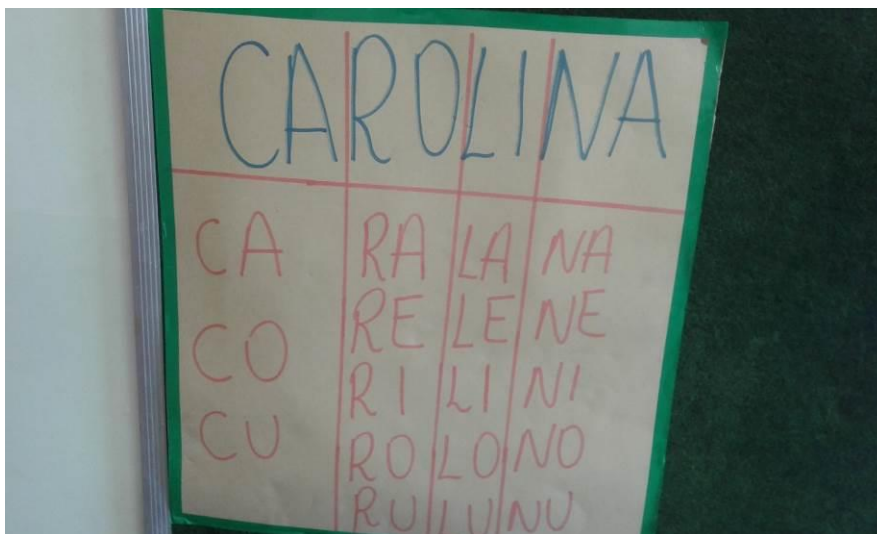 CAROLINA
CA RA LA NA
RE LE NE
CO RI LI NI
CU RO LO NO
RU LU NU